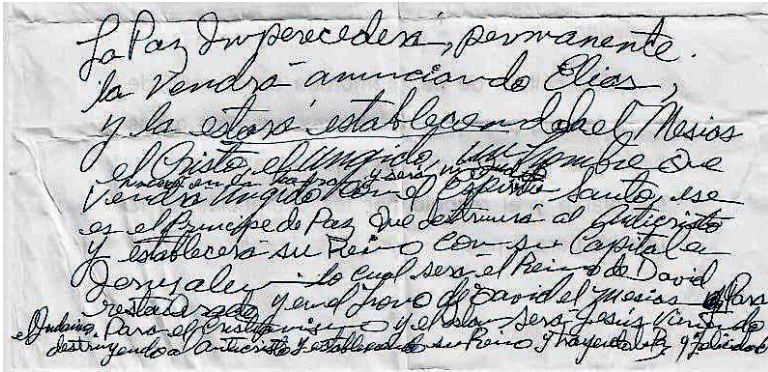 La Paz Imperecedera, permanente.
la vendrá anunciando Elías,
y la estará estableciendola el Mesías
el Cristo, el Ungido, un hombre que
nacerá en la tierra y será
vendrá Ungido con el Espíritu Santo, ese
es el Príncipe de Paz que destruirá al anticristo
y establecerá su Reino con su Capital en
Jerusalem lo cual será el Reino de David
restaurado y en el Trono de David el Mesías Para
el Judaísmo. Para el Cristianismo y el Islam será Jesús Viniendo
destruyendo a anticristo y estableciendo su Reino y trayendo la Paz y felicidad